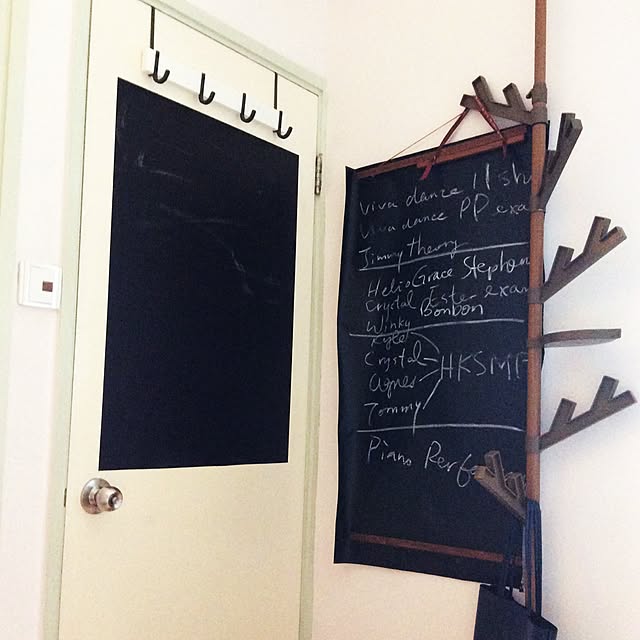 Viva dance 11 sh
Viva dance PP exa
Jimmy theory
Helio Grace Stephen
Crystal Ester exam
Winky Bonbon
Kyle
Crystal
Agnes HKSMF
Tommy
Piano Perfo